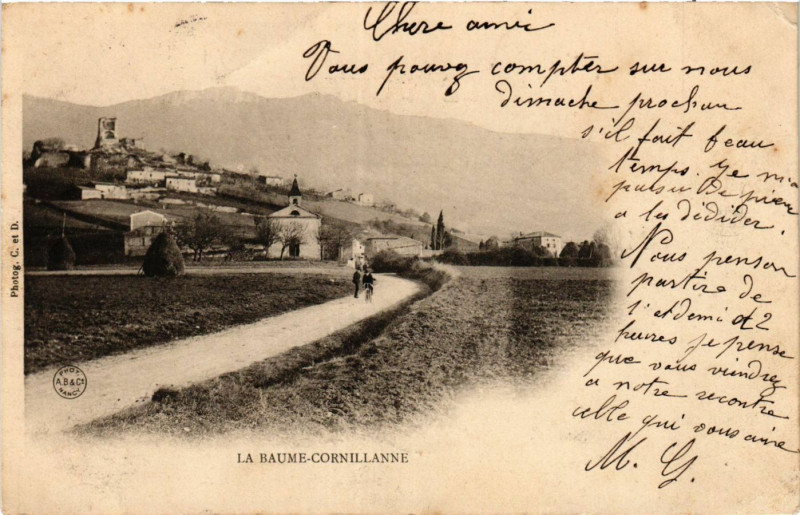 Chere amie
Vous pouvez compter sur nous
dimache prochan
s'il fait beau
temps. Je
a les dédider.
Nous penson
partire de
1 et demi a 2
heures je pense
que vous viendrez
a notre recontre
celle qui vous aime
M. G.
Photog. C. et D.
PHOT.
A.B & Cie
NANCY
LA BAUME-CORNILLANNE